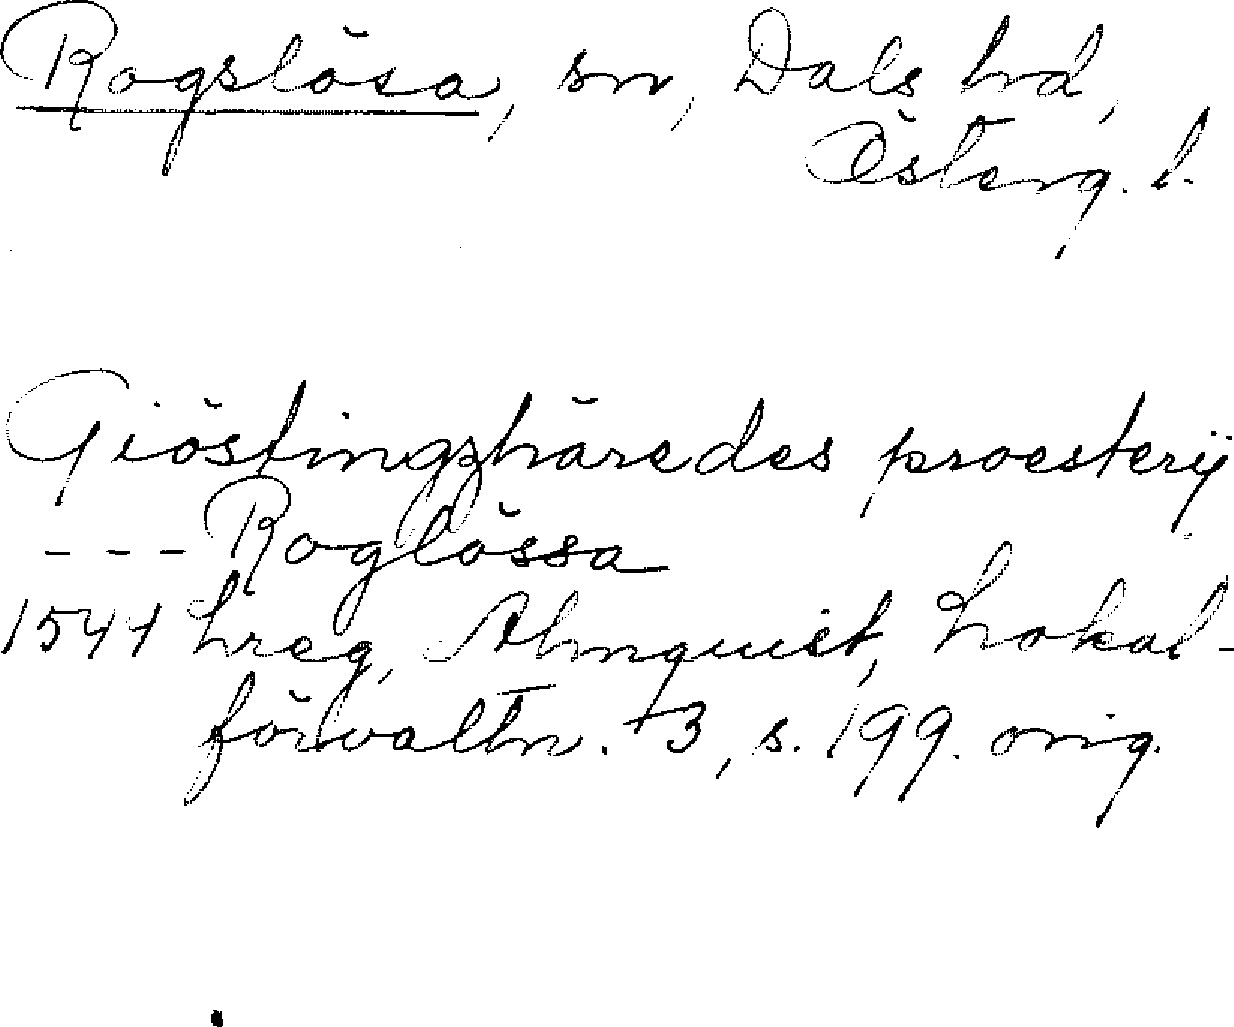 Rogslösa, sn, Dals hd,
Österg. l.
Giöstingzhäredes proesterij
--- Roglössa
1544 Lreg, Almquist, Lokal-
förvaltn. +3, s. 199. orig.